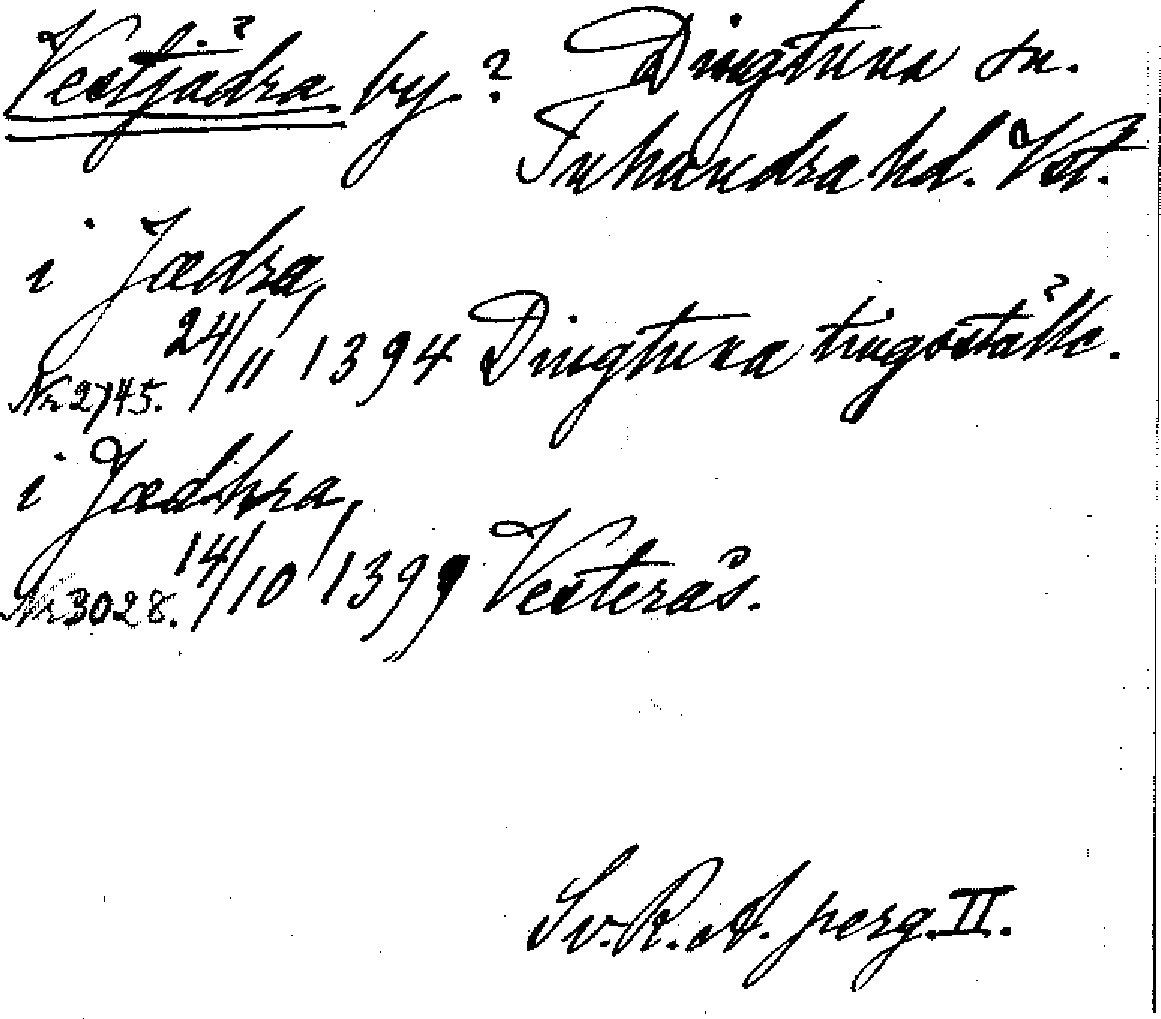 Vestjädra by.? Dingtuna sn.
Tuhundra hd. Vst.
i Jædra,
Nr 2745. 24/11 1394 Dingtuna tingställe.
i Jædhra,
Nr 3028. 14/10 1399 Vesterås.
Sv. R. A. perg. II.